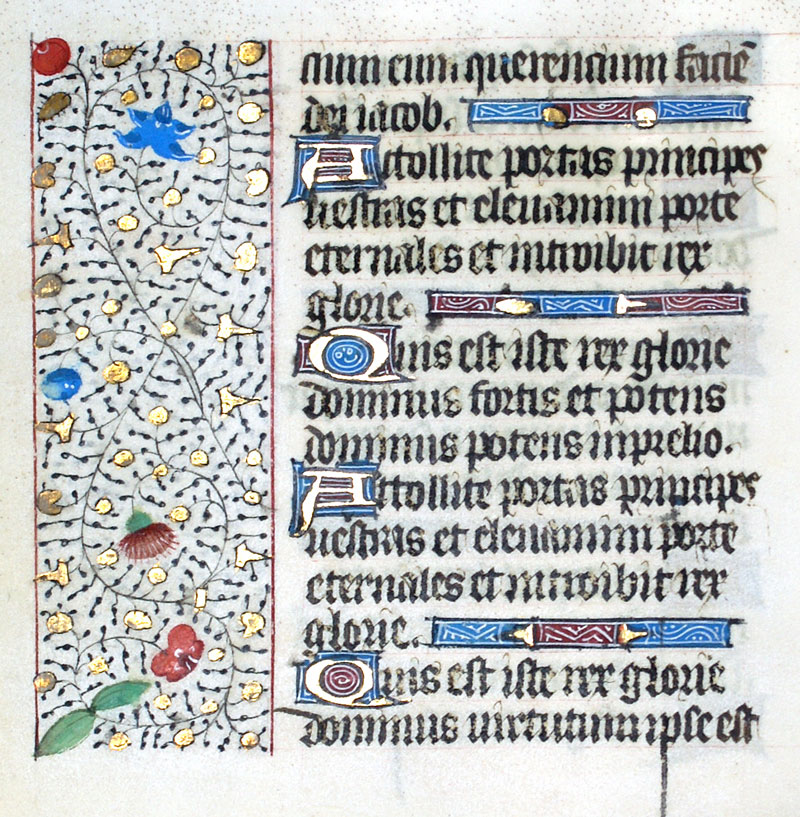 cium eum querencium faciē
dei iacob.
Attollite portas principes
uestras et eleuamini porte
eternales et introibit rex
glorie.
Quis est iste rex glorie
dominus fortis et potens
dominus potens in prelio.
Attollite portas principes
uestras et eleuamini porte
eternales et introibit rex
glorie.
Quis est iste rex glorie
dominus uirtutum ipse est